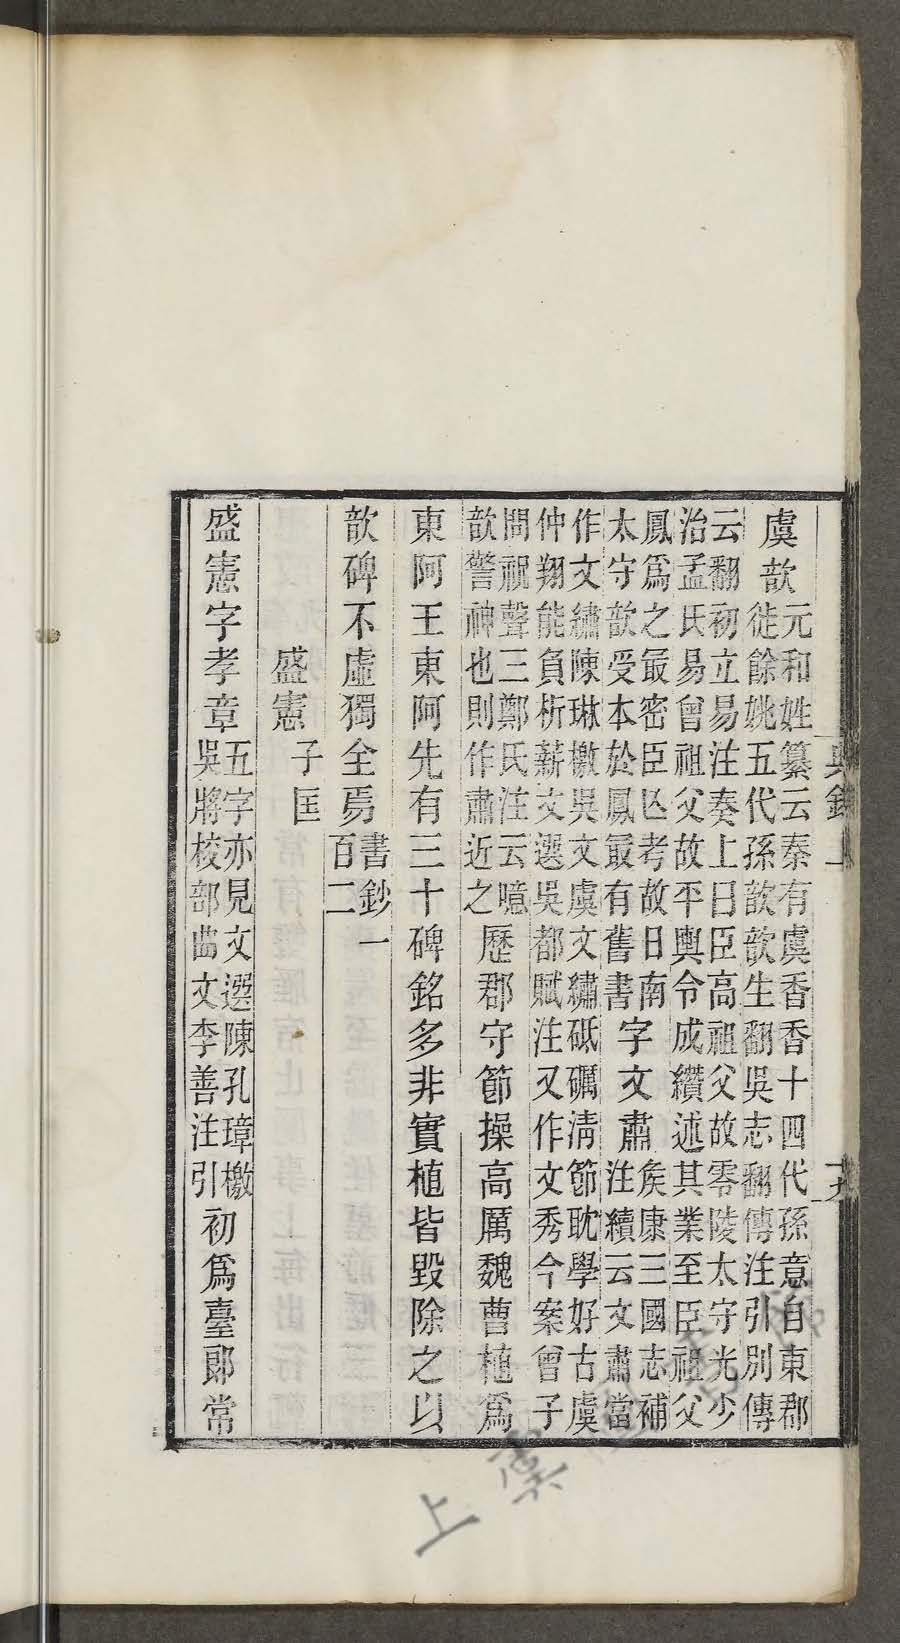 虞歆
元和姓纂云秦有虞香香十四代孫意自東郡
徙餘姚五代孫歆歆生翻吳志翻傳注引別傳
云翻初立易注奏上曰臣高祖父故零陵太守光少
治孟氏易曾祖父故平輿令成纘述其業至臣祖父
鳳為之最密臣亾考故日南
太守歆受本於鳳最有舊書
字文肅
矦康三國志補
注續云文肅當
作文繡陳琳檄吳文虞文繡砥礪清節耽學好古虞
仲翔能負析薪文選吳都賦注又作文秀今案曾子
問祝聲三鄭氏注云噫
歆警神也則作肅近之
歷郡守節操高厲魏曹植為
東阿王東阿先有三十碑銘多非實植皆毀除之以
歆碑不虛獨全焉
書鈔一
百二
盛憲 子匡
盛憲字孝章
五字亦見文選陳孔璋檄
吳將校部曲文李善注引
初為臺郎常
上虞